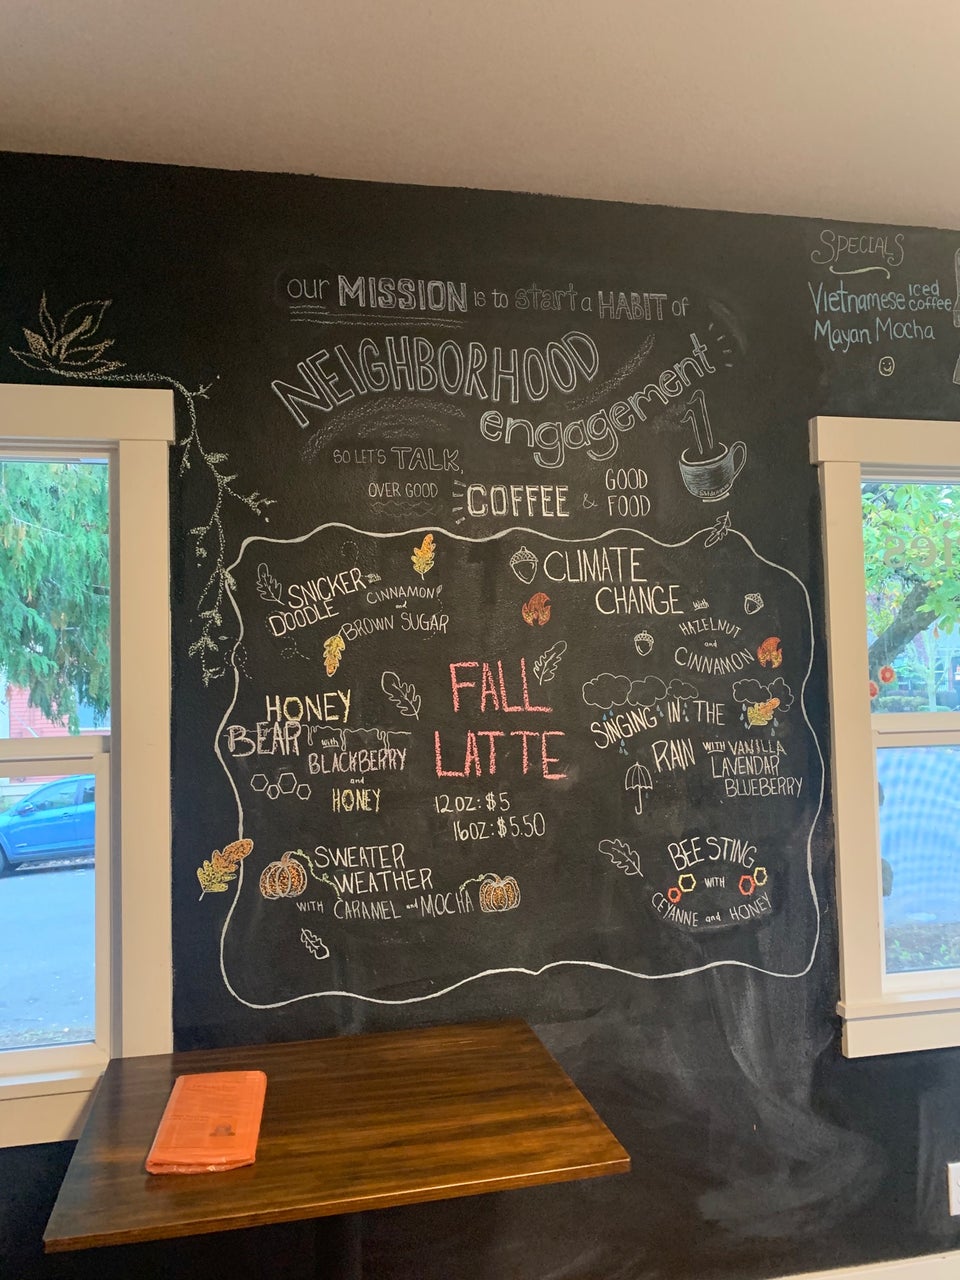 our MISSION is to start a HABIT of
NEIGHBORHOOD
engagement
SO LET'S TALK,
OVER GOOD COFFEE & GOOD FOOD
SPECIALS
Vietnamese iced coffee
Mayan Mocha
SNICKER
DOODLE
CINNAMON
and
BROWN SUGAR
CLIMATE
CHANGE with
HAZELNUT
and
CINNAMON
FALL
LATTE
12oz: $5
16oz: $5.50
HONEY
BEAR with
BLACKBERRY
and
HONEY
SINGING IN THE
RAIN WITH VANILLA
LAVENDAR
BLUEBERRY
SWEATER
WEATHER
WITH CARAMEL and MOCHA
BEE STING
WITH
CEYANNE and HONEY